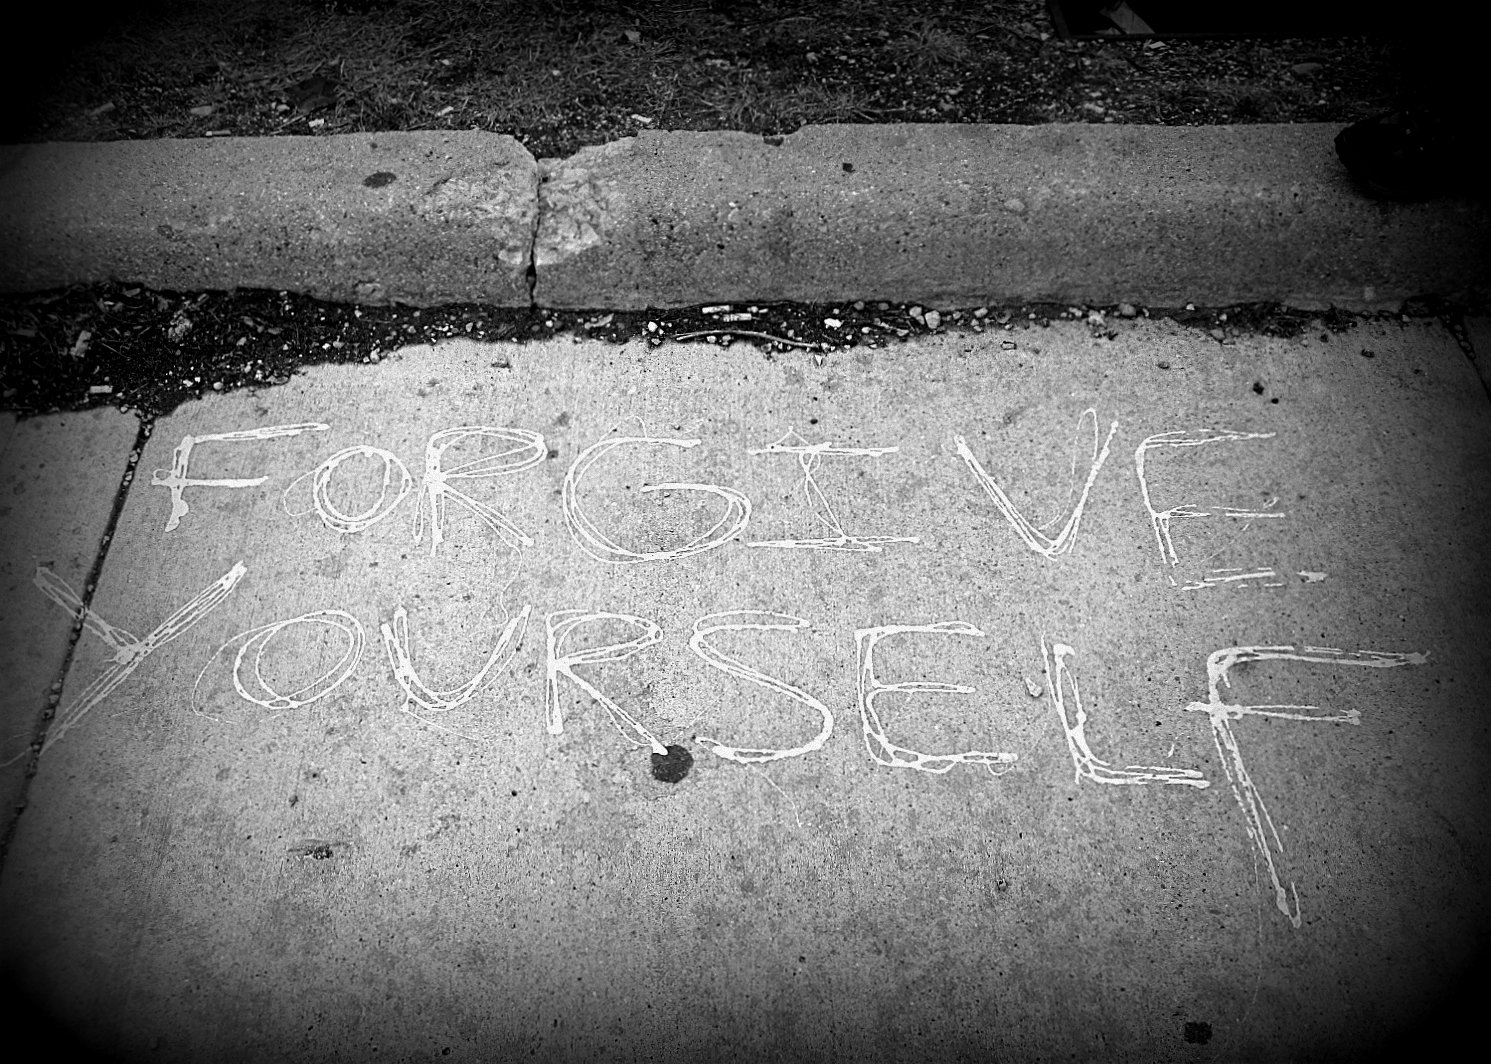 FORGIVE
YOURSELF